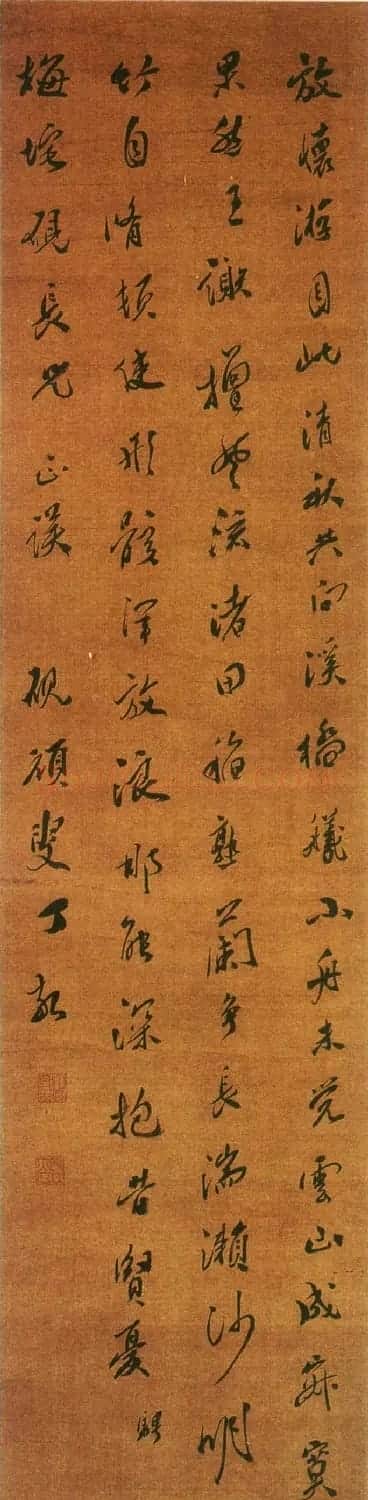 放懷游目此清秋共向溪橋艤小舟未覺雲山成寂寞
果然王謝擅風流渚田稻熟蘭爭長湍瀨沙明
竹自脩頓使形骸渾放浪那能深抱昔賢憂
梅垞硯長兄正誤 硯碩叟丁敬